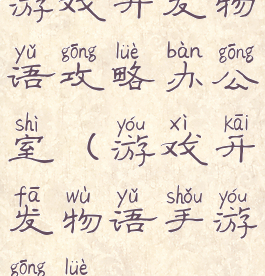 游戏开发物
yǔ gōng lüè bàn gōng
语攻略办公
shì yóu xì kāi
室（游戏开
fā wù yǔ shǒu yóu
发物语手游
gōng lüè